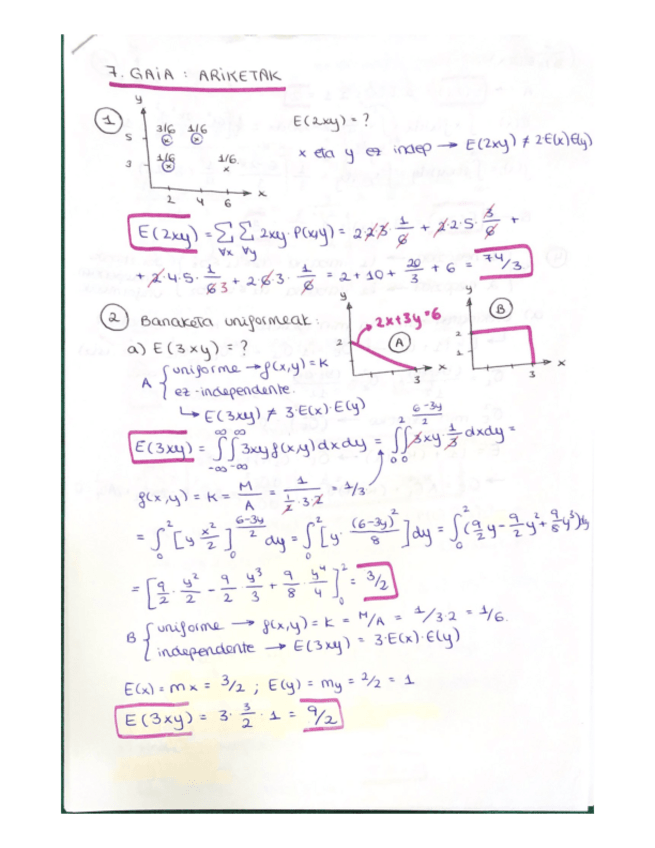 7. GAIA : ARIKETAK
① y 5 3 3/6 1/6 1/6 1/6 2 4 6 x
E(2xy) = ?
x eta y ez indep → E(2xy) ≠ 2E(x)E(y)
E(2xy) = Σ∀x Σ∀y 2xy·P(x,y) = 2·2·3·1/6 + 2·2·5·3/6 +
+ 2·4·5·1/6 3 + 2·6·3·1/6 = 2 + 10 + 20/3 + 6 = 74/3
② Banaketa uniformeak:
y 2 2x+3y=6 A 3 x
y 2 1 B 3 x
a) E(3xy) = ?
A { uniforme → f(x,y) = K
ez-independente.
↳ E(3xy) ≠ 3·E(x)·E(y)
E(3xy) = ∫_{-∞}^{∞} ∫_{-∞}^{∞} 3xy f(x,y) dx dy = ∫_0^2 ∫_0^{(6-3y)/2} 3xy·1/3 dx dy =
f(x,y) = K = M/A = 1/(1/2·3·2) = 1/3
= ∫_0^2 [y x²/2]_0^{(6-3y)/2} dy = ∫_0^2 [y·(6-3y)²/8] dy = ∫_0^2 (9/2 y - 9/2 y² + 9/8 y³) dy
= [9/2·y²/2 - 9/2·y³/3 + 9/8·y⁴/4]_0^2 = 3/2
B { uniforme → f(x,y) = K = M/A = 1/3·2 = 1/6.
independente → E(3xy) = 3·E(x)·E(y)
E(x) = mx = 3/2 ; E(y) = my = 2/2 = 1
E(3xy) = 3·3/2·1 = 9/2